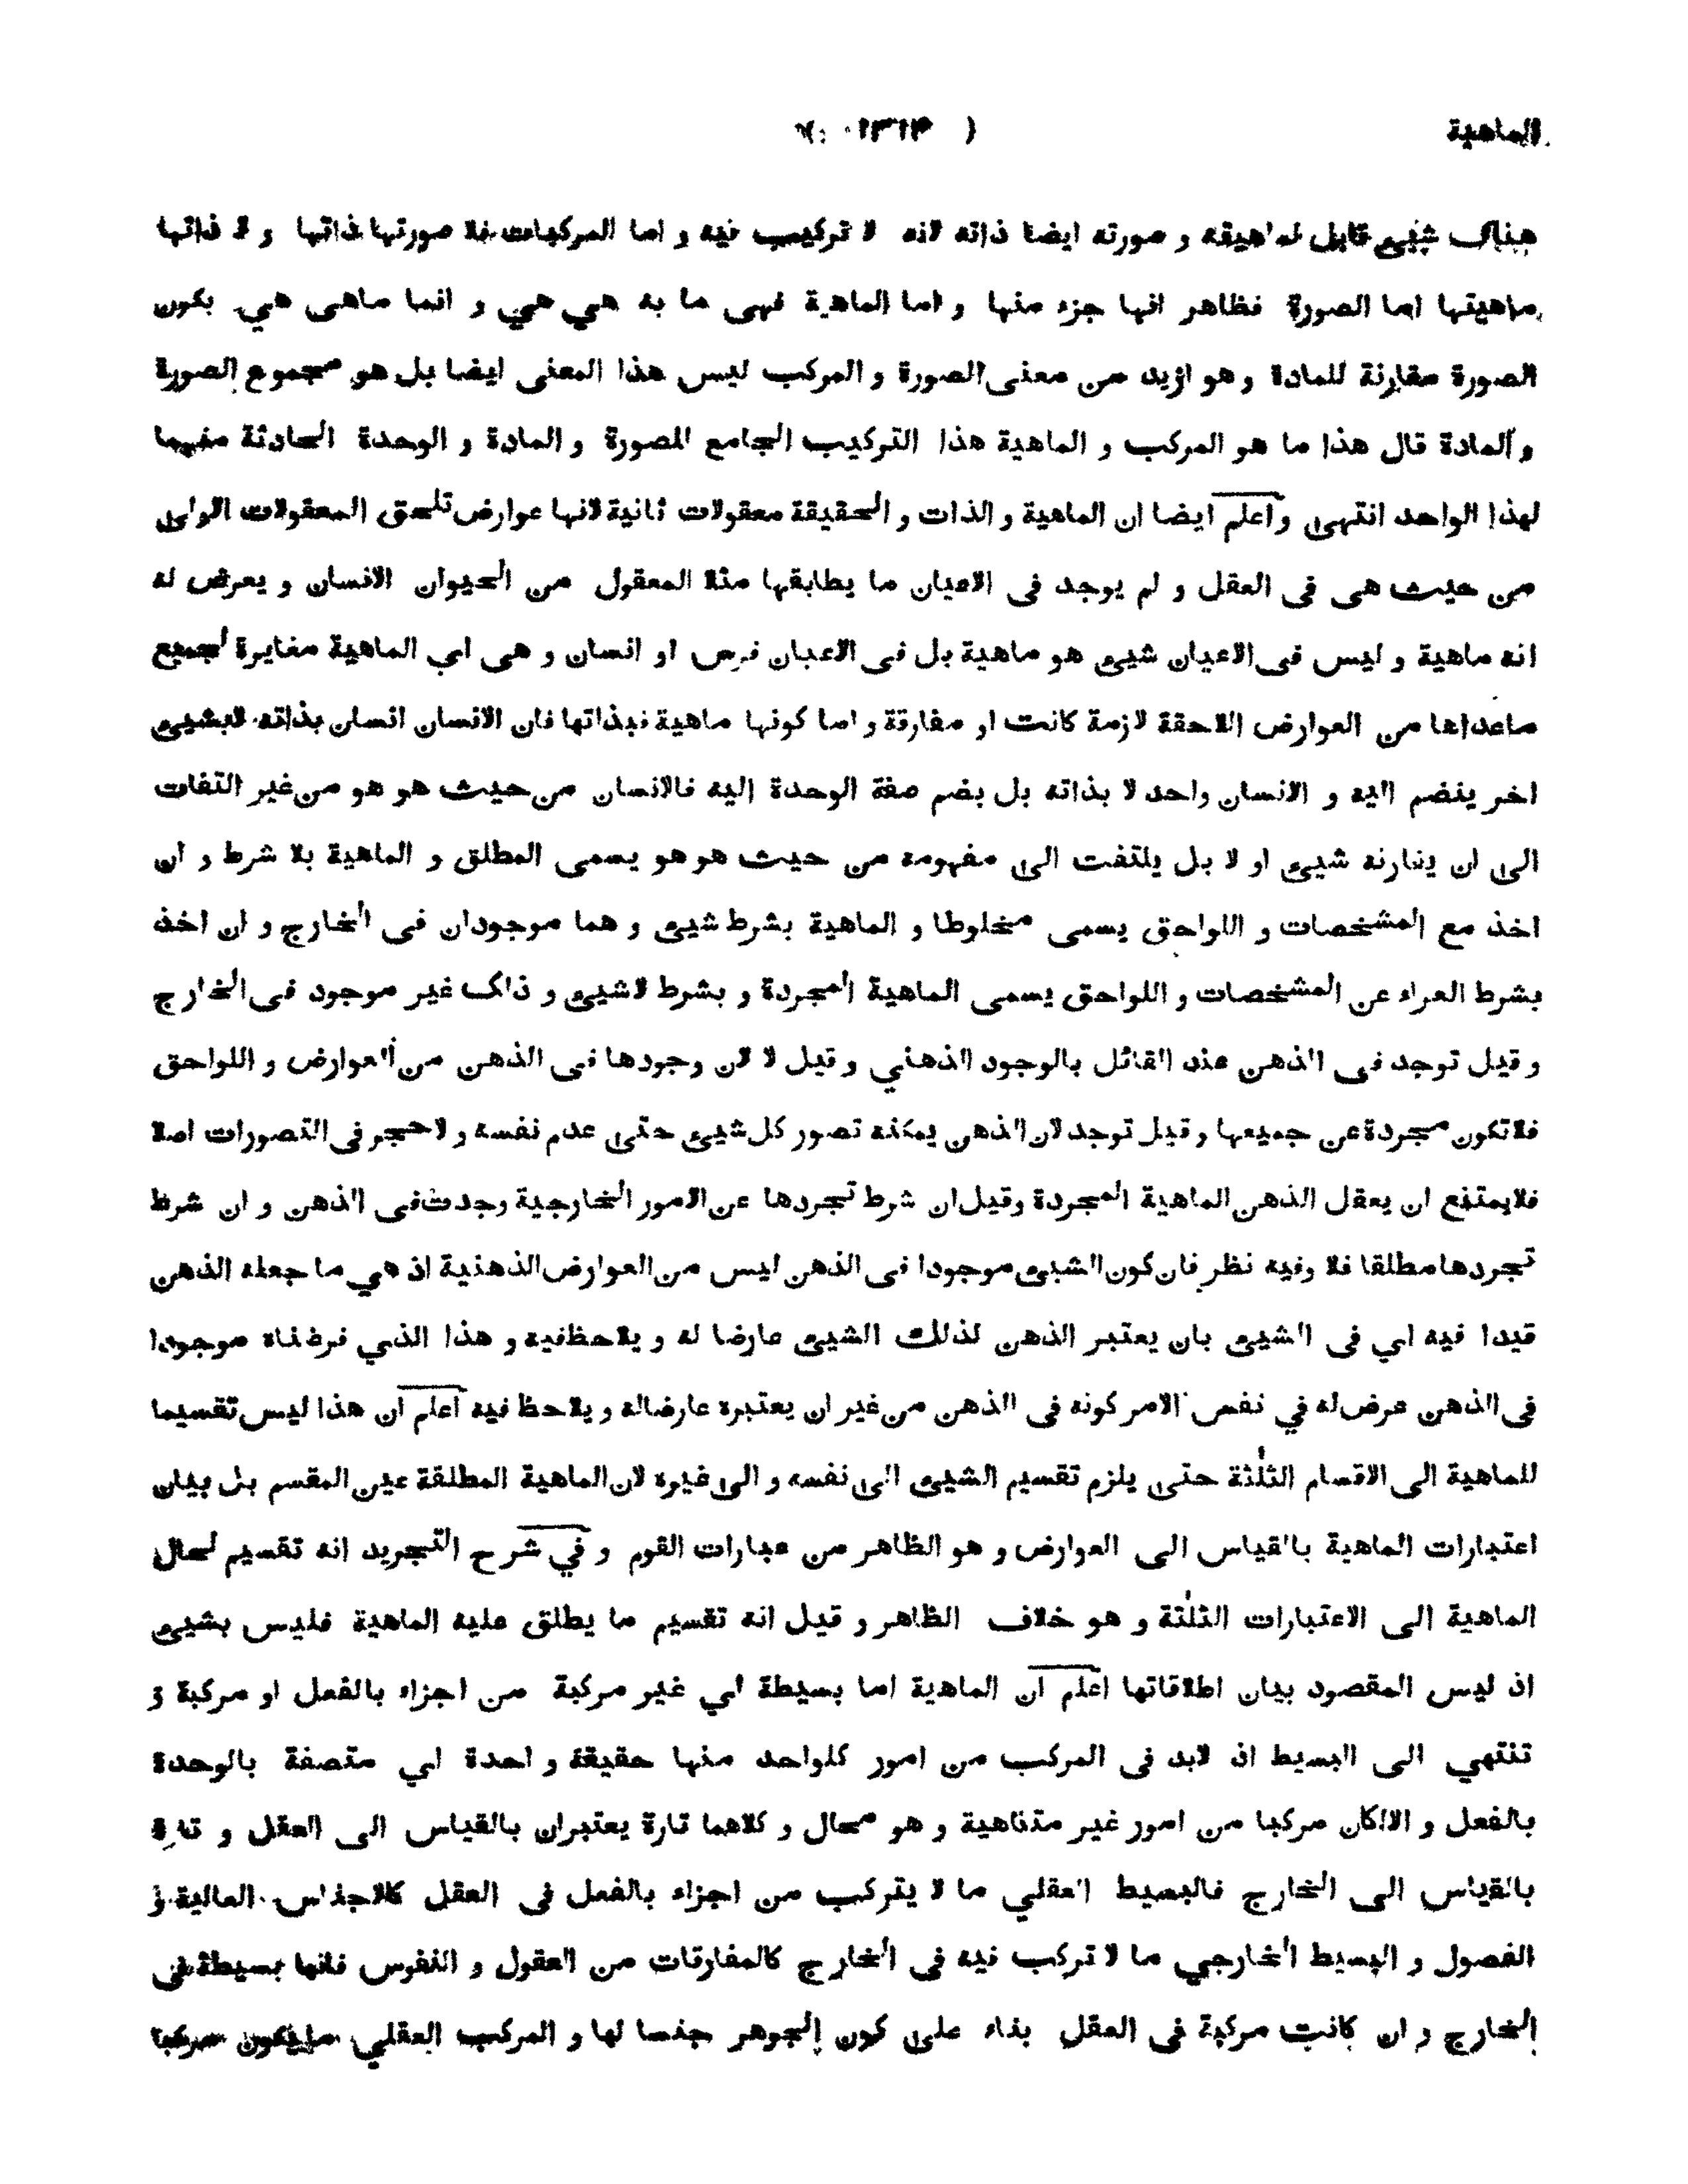 الماهية ( ١٣١٤ )
هناك شيئ قابل لماهيته و صورته ايضا ذاته لانه لا تركيب فيه و اما المركبات فلا صورتها ذاتها و لا ذاتها
ماهيتها اما الصورة فظاهر انها جزء منها و اما الماهية فهى ما به هي هي و انما ماهى هي بكون
الصورة مقارنة للمادة و هو ازيد من معنى الصورة و المركب ليس هذا المعنى ايضا بل هو مجموع الصورة
و المادة قال هذا ما هو المركب و الماهية هذا التركيب الجامع للصورة و المادة و الوحدة الحادثة منهما
لهذا الواحد انتهى و اعلم ايضا ان الماهية و الذات و الحقيقة معقولات ثانية لانها عوارض تلحق المعقولات الاولى
من حيث هى فى العقل و لم يوجد فى الاعيان ما يطابقها مثلا المعقول من الحيوان الانسان و يعرض له
انه ماهية و ليس فى الاعيان شيئ هو ماهية بل فى الاعيان فرس او انسان و هى اي الماهية مغايرة لجميع
ماعداها من العوارض اللاحقة لازمة كانت او مفارقة و اما كونها ماهية فبذاتها فان الانسان انسان بذاته لابشيئ
اخر ينضم اليه و الانسان واحد لا بذاته بل بضم صفة الوحدة اليه فالانسان من حيث هو هو من غير التفات
الى ان يقارنه شيئ او لا بل يلتفت الى مفهومه من حيث هو هو يسمى المطلق و الماهية بلا شرط و ان
اخذ مع المشخصات و اللواحق يسمى مخلوطا و الماهية بشرط شيئ و هما موجودان فى الخارج و ان اخذ
بشرط العراء عن المشخصات و اللواحق يسمى الماهية المجردة و بشرط لاشيئ و ذلك غير موجود فى الخارج
و قيل توجد فى الذهن عند القائل بالوجود الذهني و قيل لا لان وجودها فى الذهن من العوارض و اللواحق
فلا تكون مجردة عن جميعها و قيل توجد لان الذهن يمكنه تصور كل شيئ حتى عدم نفسه و لا حجر فى التصورات اصلا
فلا يمتنع ان يعقل الذهن الماهية المجردة وقيل ان شرط تجردها عن الامور الخارجية وجدت فى الذهن و ان شرط
تجردها مطلقا فلا وفيه نظر فان كون الشيئ موجودا فى الذهن ليس من العوارض الذهنية اذ هي ما جعله الذهن
قيدا فيه اي فى الشيئ بان يعتبر الذهن لذلك الشيئ عارضا له و يلاحظ فيه و هذا الذي فرضناه موجودا
فى الذهن عرض له في نفس الامر كونه فى الذهن من غير ان يعتبره عارضا له و يلاحظ فيه اعلم ان هذا ليس تقسيما
للماهية الى الاقسام الثلٰثة حتى يلزم تقسيم الشيئ الى نفسه و الى غيره لان الماهية المطلقة عين المقسم بل بيان
اعتبارات الماهية بالقياس الى العوارض و هو الظاهر من عبارات القوم و في شرح التجريد انه تقسيم لحال
الماهية الى الاعتبارات الثلٰثة و هو خلاف الظاهر و قيل انه تقسيم ما يطلق عليه الماهية فليس بشيئ
اذ ليس المقصود بيان اطلاقاتها اعلم ان الماهية اما بسيطة اي غير مركبة من اجزاء بالفعل او مركبة و
تنتهي الى البسيط اذ لابد فى المركب من امور كلواحد منها حقيقة و احدة اي متصفة بالوحدة
بالفعل و الا لكان مركبا من امور غير متناهية و هو محال و كلاهما تارة يعتبران بالقياس الى العقل و تارة
بالقياس الى الخارج فالبسيط العقلي ما لا يتركب من اجزاء بالفعل فى العقل كالاجناس العالية و
الفصول و البسيط الخارجي ما لا تركب فيه فى الخارج كالمفارقات من العقول و النفوس فانها بسيطة فى
الخارج و ان كانت مركبة فى العقل بناء على كون الجوهر جنسا لها و المركب العقلي ما يكون مركبا